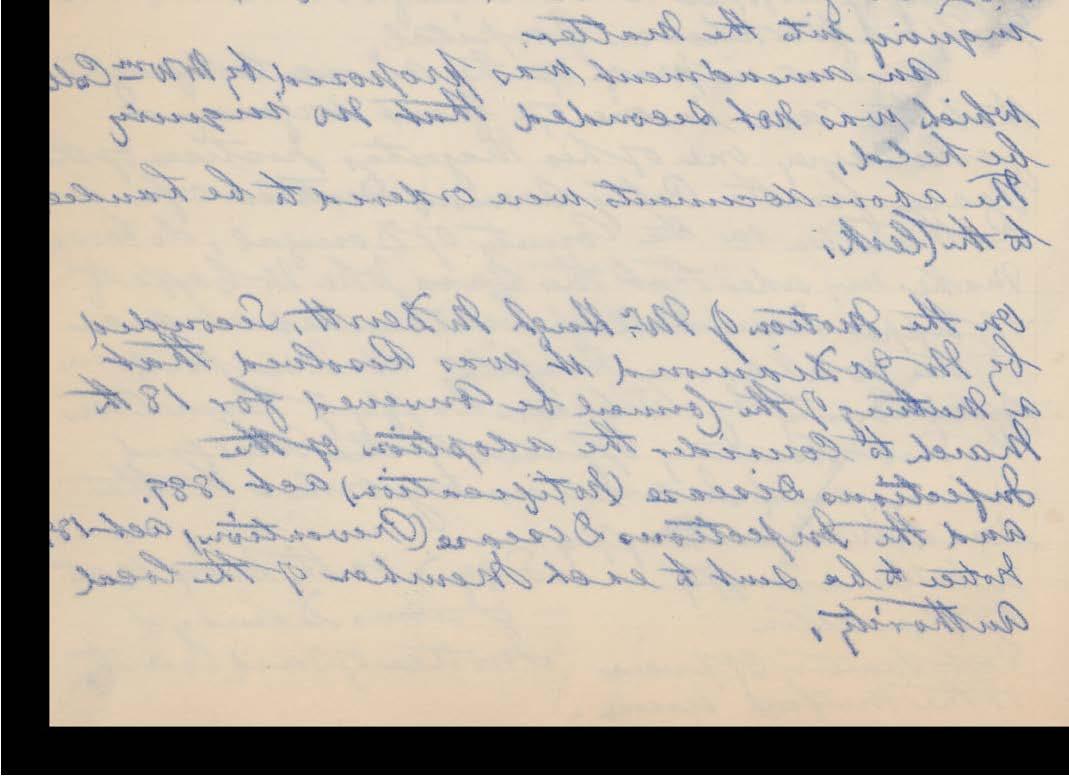 inquiry into the matter.
An amendment was proposed by Mr Wm Cole
which was not seconded that no inquiry
be held.
The above documents were ordered to be handed
to the Clerk.
On the Motion of Mr. Hugh Seconded
by Mr Jas Diamond it was Resolved that
a Meeting of the Council be Convened for 18th
March to Consider the adoption of the
Infectious Disease (Notification) Act 1889.
and the Infectious Disease (Prevention) Act 18
notice to be sent to each Member of the Local
Authority.